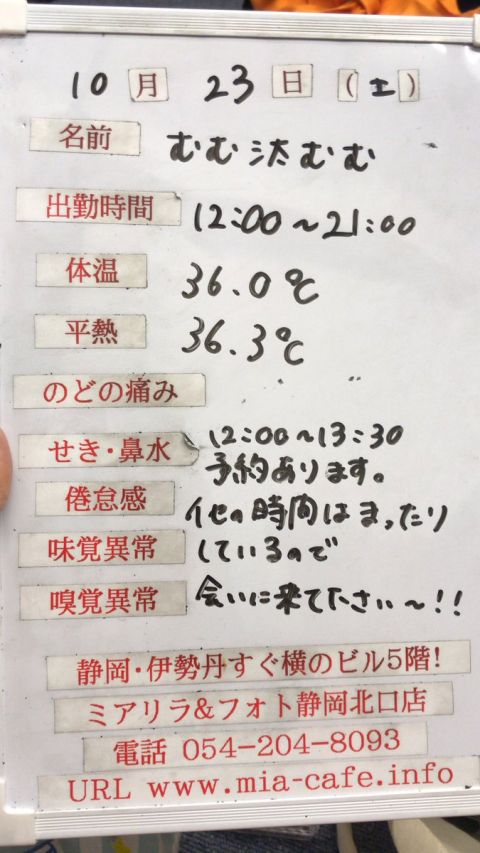 10月 23日 (土)
名前 むむ汰むむ
出勤時間 12:00~21:00
体温 36.0℃
平熱 36.3℃
のどの痛み
せき・鼻水 12:00~13:30
予約あります。
倦怠感 他の時間はまったり
味覚異常 しているので
嗅覚異常 会いに来てださい~!!
静岡・伊勢丹すぐ横のビル5階!
ミアリラ&フォト静岡北口店
電話 054-204-8093
URL www.mia-cafe.info